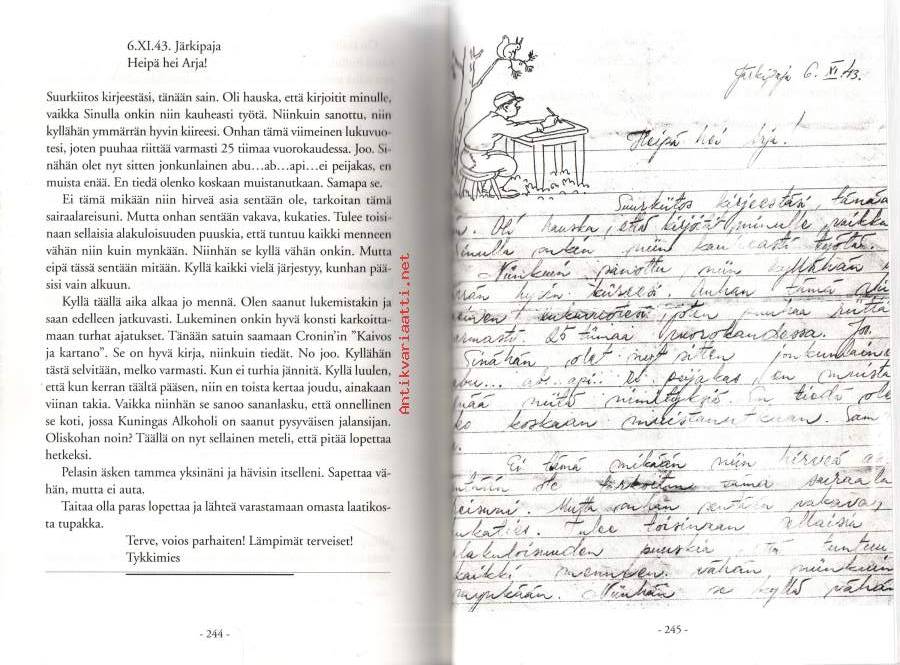 6.XI.43. Järkipaja
Heipä hei Arja!
Suurkiitos kirjeestäsi, tänään sain. Oli hauska, että kirjoitit minulle,
vaikka Sinulla onkin niin kauheasti työtä. Niinkuin sanottu, niin
kyllähän ymmärrän hyvin kiireesi. Onhan tämä viimeinen lukuvuo-
tesi, joten puuhaa riittää varmasti 25 tiimaa vuorokaudessa. Joo. Si-
nähän olet nyt sitten jonkunlainen abu…ab…api…ei peijakas, en
muista enää. En tiedä olenko koskaan muistanutkaan. Samapa se.
Ei tämä mikään niin hirveä asia sentään ole, tarkoitan tämä
sairaalareisuni. Mutta onhan sentään vakava, kukaties. Tulee toisi-
naan sellaisia alakuloisuuden puuskia, että tuntuu kaikki menneen
vähän niin kuin mynkään. Niinhän se kyllä vähän onkin. Mutta
eipä tässä sentään mitään. Kyllä kaikki vielä järjestyy, kunhan pää-
sisi vain alkuun.
Kyllä täällä aika alkaa jo mennä. Olen saanut lukemistakin ja
saan edelleen jatkuvasti. Lukeminen onkin hyvä konsti karkoitta-
maan turhat ajatukset. Tänään satuin saamaan Cronin'in "Kaivos
ja kartano". Se on hyvä kirja, niinkuin tiedät. No joo. Kyllähän
tästä selvitään, melko varmasti. Kun ei turhia jännitä. Kyllä luulen,
että kun kerran täältä pääsen, niin en toista kertaa joudu, ainakaan
viinan takia. Vaikka niinhän se sanoo sananlasku, että onnellinen
se koti, jossa Kuningas Alkoholi on saanut pysyväisen jalansijan.
Oliskohan noin? Täällä on nyt sellainen meteli, että pitää lopettaa
hetkeksi.
Pelasin äsken tammea yksinäni ja hävisin itselleni. Sapettaa vä-
hän, mutta ei auta.
Taitaa olla paras lopettaa ja lähteä varastamaan omasta laatikos-
ta tupakka.
Terve, voios parhaiten! Lämpimät terveiset!
Tykkimies
- 244 -
Antikvariaatti.net
Järkipaja 6. XI 43.
Heipä hei Arja!
Suurkiitos kirjeestäsi, tänää
n. Oli hauska, että kirjoitit minulle, vaikka
inulla onkin niin kauheasti työtä.
Niinkuin sanottu, niin kyllähän y
rrän hyvin kiireesi. Onhan tämä vii
einen lukuvuotesi, joten puuhaa riittä
armasti 25 tiimaa vuorokaudessa. Joo.
Sinähän olet nyt sitten jonkunlaine
abu... ab.. api... ei peijakas, en muista
nää niitä nimityksiä. En tiedä ole
ko koskaan muistanutkaan. Sam
Ei tämä mikään niin hirveä as
ntään ole tarkoitan tämä sairaala
reisuni. Mutta onhan sentään vakava,
ukaties. Tulee toisinaan sellaisia
alakuloisuuden puuskia että tuntuu
kaikki menneen vähän niinkuin
mynkään. Niinhän se kyllä vähän
- 245 -